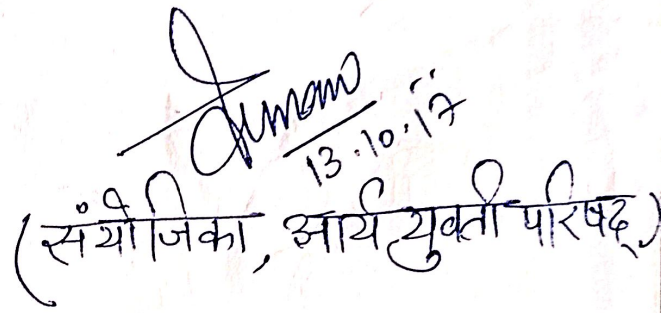 13.10.17
(संयोजिका, आर्य युवती परिषद्)